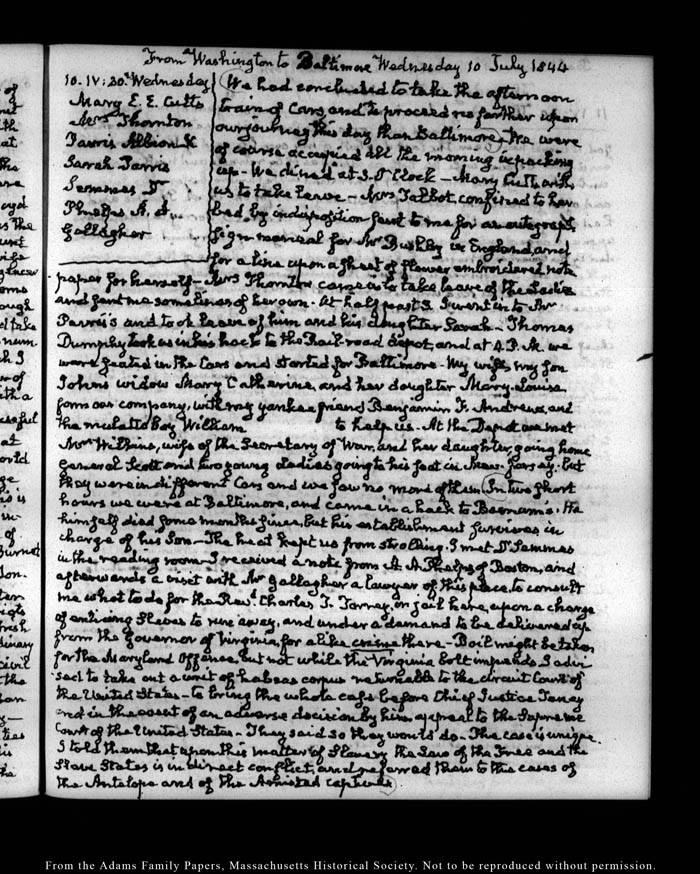 From Washington to Baltimore Wednesday 10 July 1844
10. IV: 30. Wednesday
Mary E. E. Cutts
Mrs Thornton
Parris Albion K
Sarah Parris
Semmes D.
Phelps A. A.
Gallagher
We had concluded to take the afternoon
train of Cars, and to proceed no farther upon
our journey this day than Baltimore. We were
of course occupied all the morning in packing
up. We dined at 3. O'Clock — Mary Cutts with
us to take leave — Mrs Talbot, confined to her
bed by indisposition sent to me for an autograph
sign manual for Mr Bushby in England, and
for a line upon a sheet of flower embroidered note
paper for herself — Mrs Thornton came in to take leave of the Ladies
and sent me some lines of her own. At half past 3. I went in to Mr
Parris's and took leave of him and his daughter Sarah — Thomas
Dumphy took us in his hack to the Rail-road depot, and at 4. P.M. we
were seated in the Cars and started for Baltimore. My wife, my son
John's widow Mary Catherine, and her daughter Mary-Louisa
form our company, with my yankee friend Benjamin F. Andrews, and
the mulatto boy William to help us. At the Depot we met
Mrs Wilkins, wife of the Secretary of War, and her daughter, going home
General Scott and two young Ladies going to his seat in New-Jersey. but
they were in different Cars and we saw no more of them. In two short
hours we were at Baltimore, and came in a hack to Barnum's. He
himself died some months since, but his establishment survives in
charge of his Son — The heat kept us from strolling. I met Dr Semmes
in the reading room — I received a note from A. A. Phelps of Boston, and
afterwards a visit with Mr Gallagher a lawyer of this place, to consult
me what to do for the Revd Charles T. Torrey, in jail here, upon a charge
of enticing Slaves to run away, and under a demand to be delivered up
from the Governor of Virginia, for a like crime there — Bail might be taken
for the Maryland Offence, but not while the Virginia bolt impends. I advi
sed to take out a writ of habeas corpus returnable to the circuit Court of
the United States — to bring the whole case before Chief Justice Taney
and in the event of an adverse decision by him, appeal to the Supreme
Court of the United States. They said so they would do. The case is unique.
I told them that upon this matter of Slavery the Law of the Free and the
Slave States is in direct conflict, and referred them to the cases of
the Antelope and of the Amistad captives
From the Adams Family Papers, Massachusetts Historical Society. Not to be reproduced without permission.